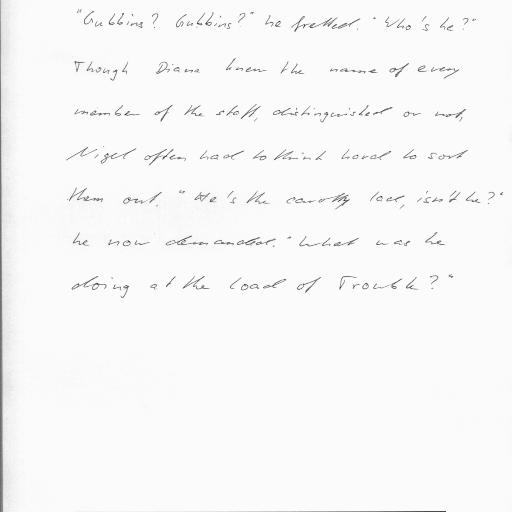 "Gubbins? Gubbins?" he fretted. "Who's he?"
Though Diana knew the name of every
member of the staff, distinguished or not,
Nigel often had to think hard to sort
them out. "He's the carotty lad, isn't he?"
he now demanded. "What was he
doing at the Load of Trouble?"